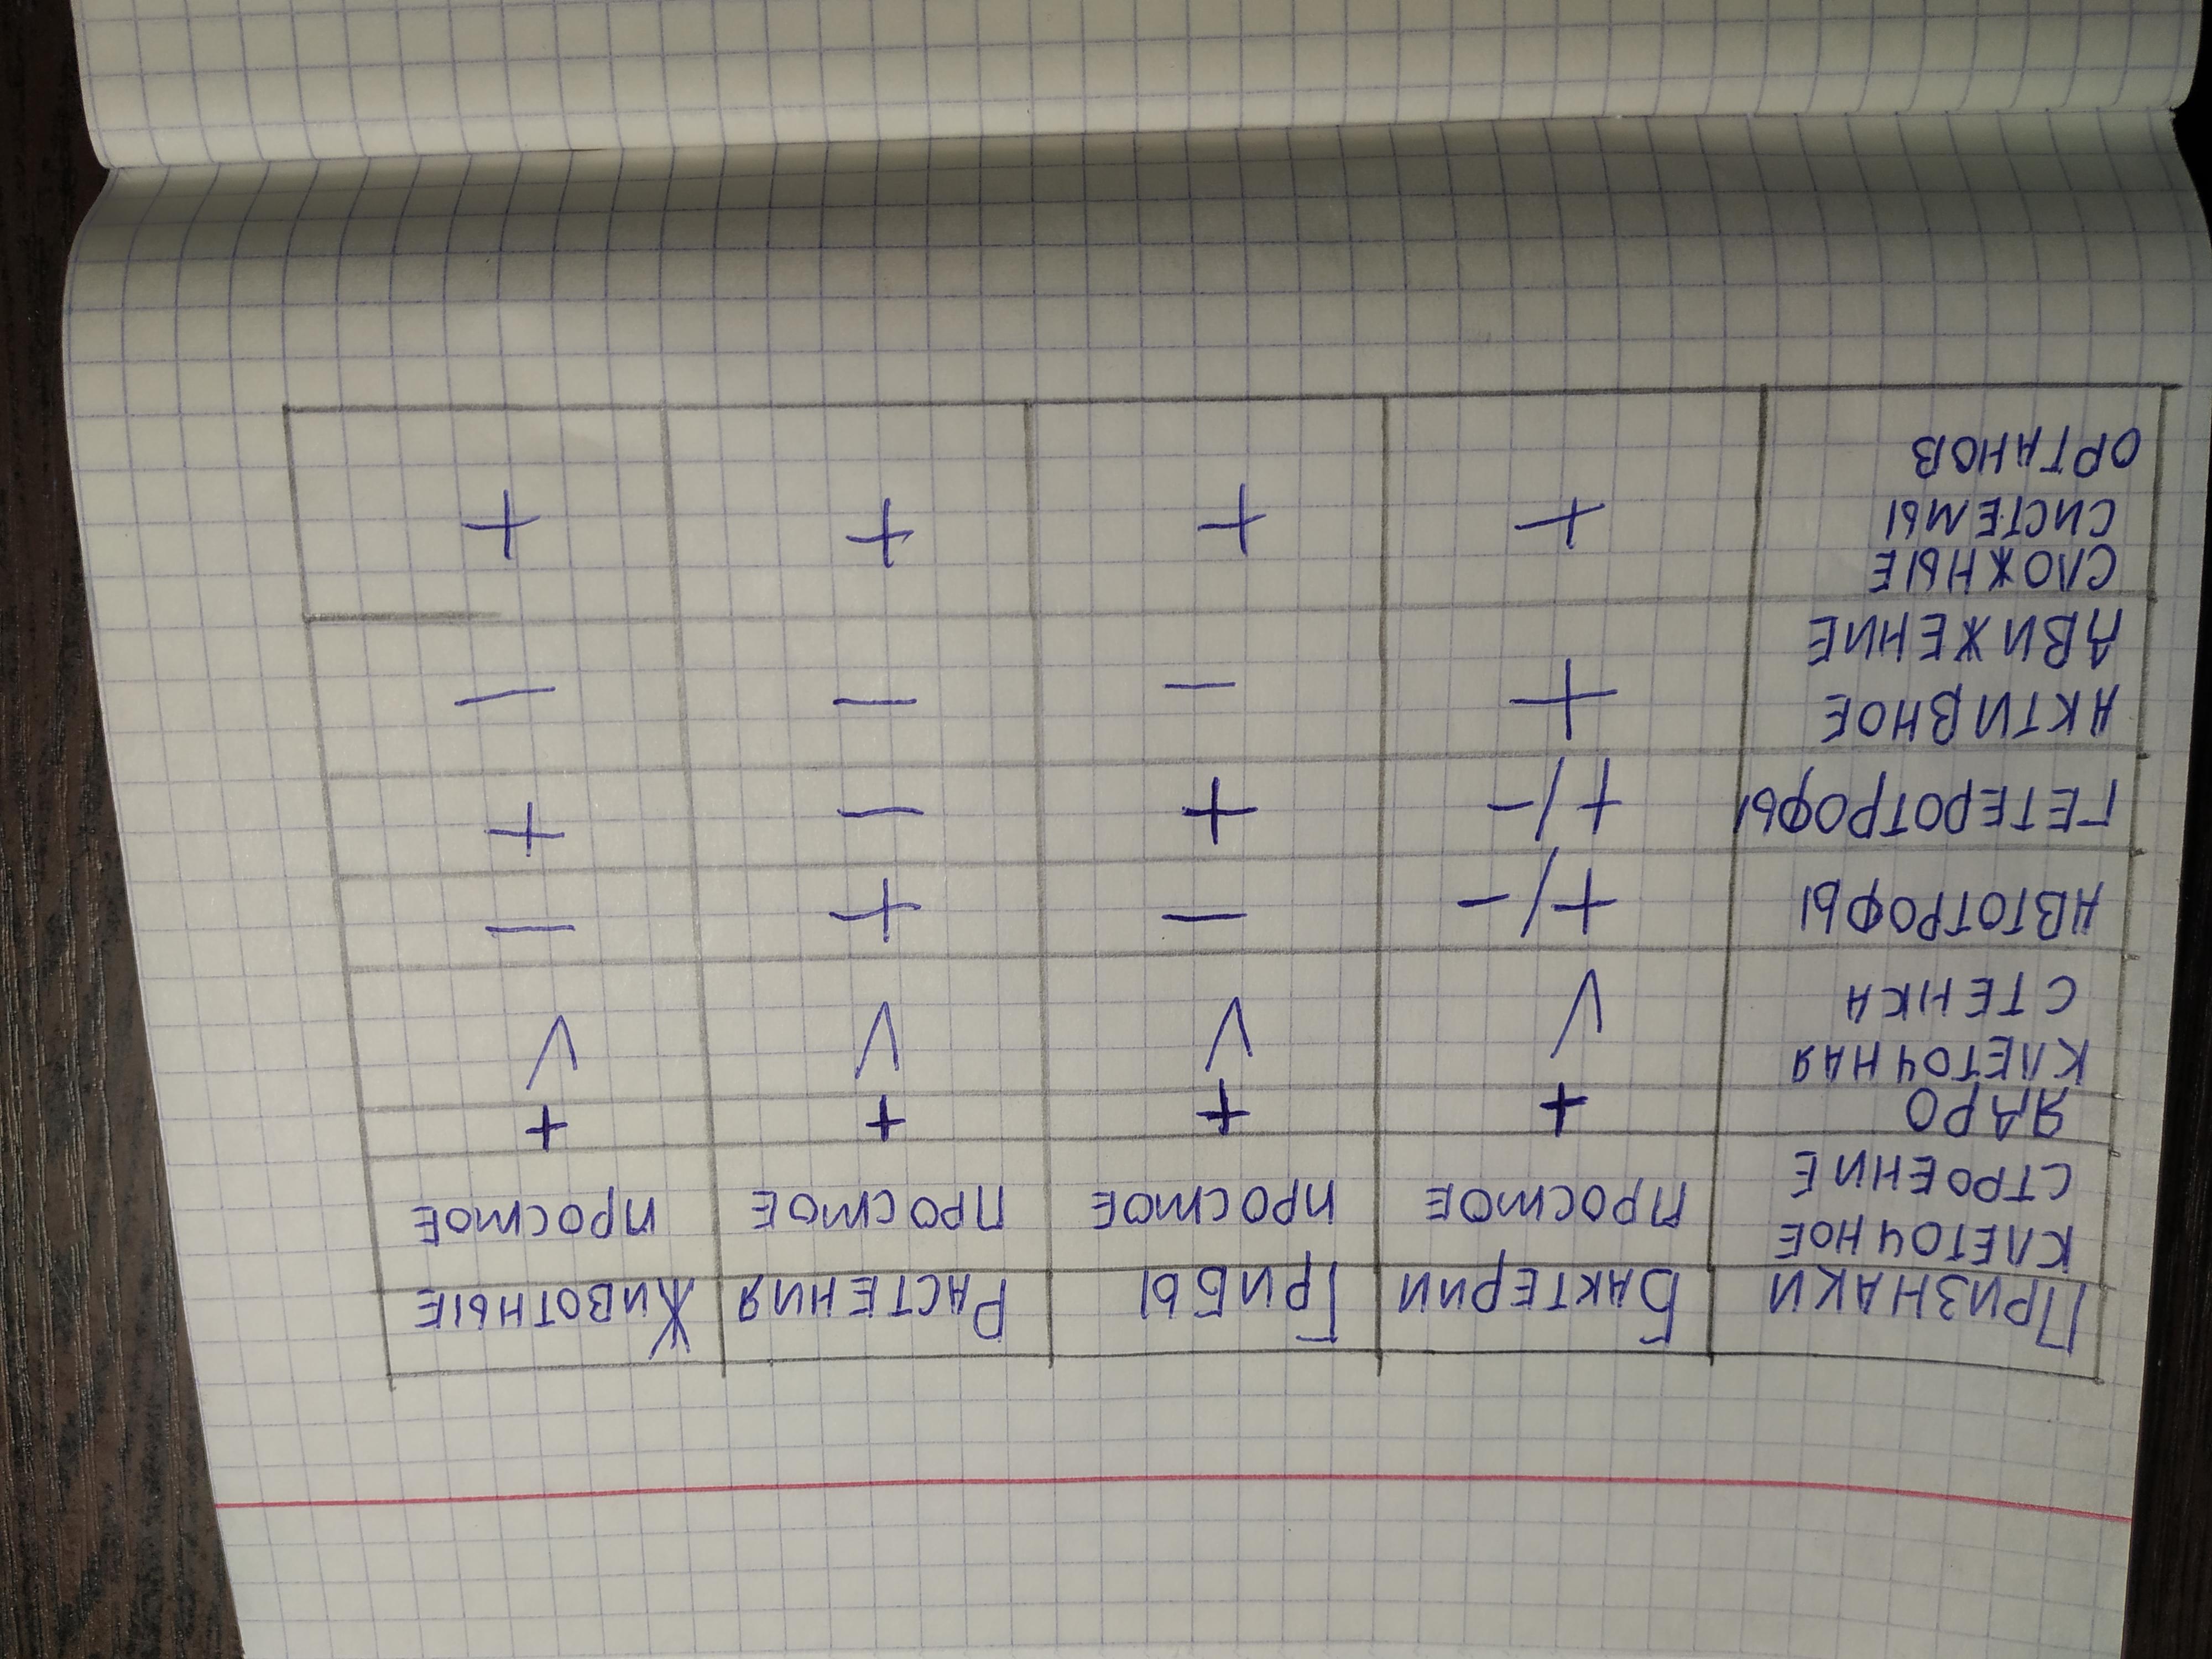 Признаки Бактерии Грибы Растения Животные
клеточное строение простое простое простое простое
ядро + + + +
клеточная стенка V V V V
автотрофы +/- - + -
гетеротрофы +/- + - +
активное движение + - - -
сложные системы органов + + + +